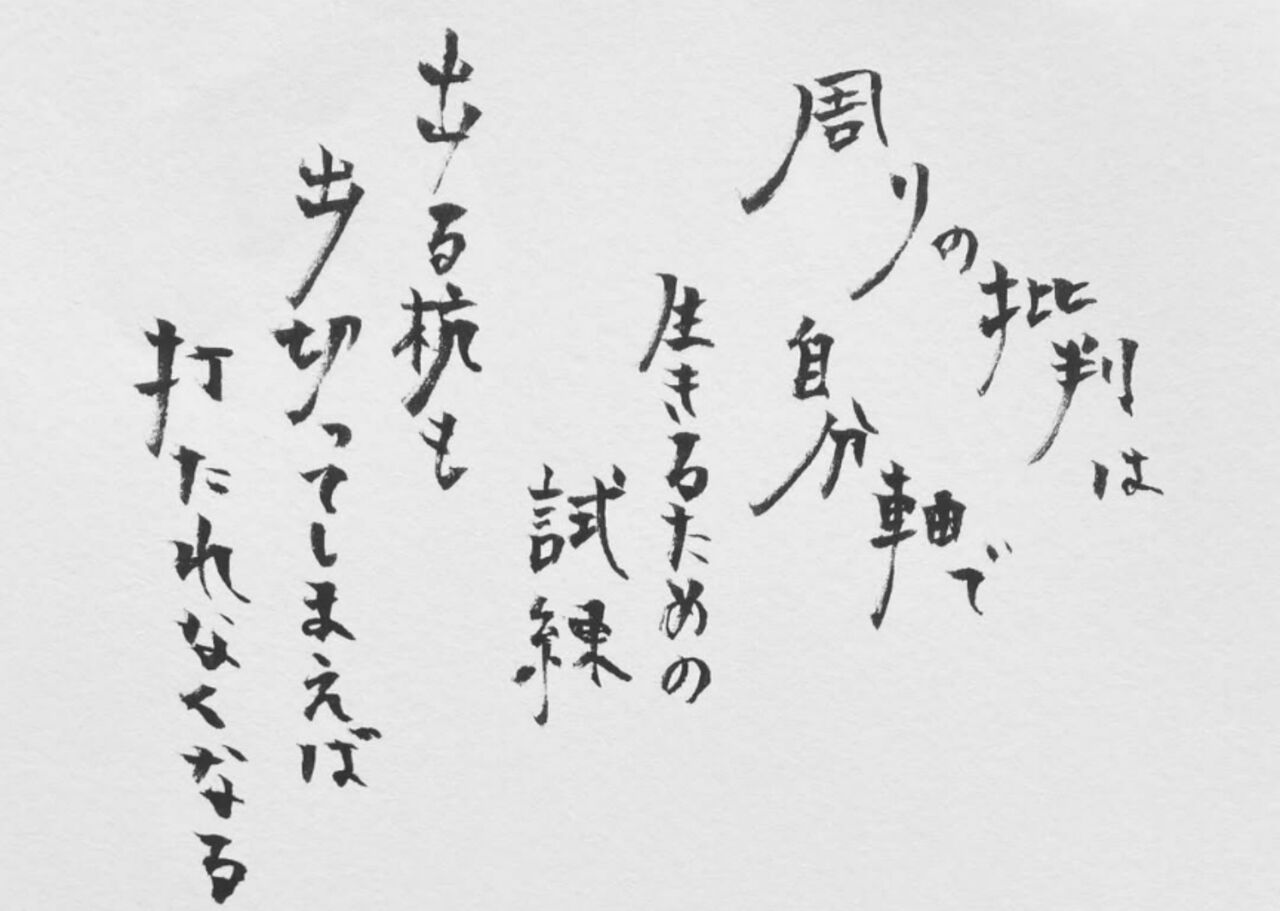 周りの批判は
自分軸で
生きるための
試練
出る杭も
出切ってしまえば
打たれなくなる